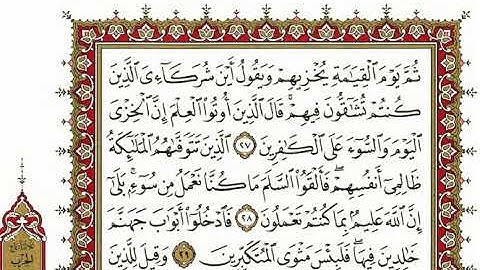 ثُمَّ يَوْمَ ٱلْقِيَـٰمَةِ يُخْزِيهِمْ وَيَقُولُ أَيْنَ شُرَكَآءِىَ ٱلَّذِينَ
كُنتُمْ تُشَـٰٓقُّونَ فِيهِمْ ۚ قَالَ ٱلَّذِينَ أُوتُوا۟ ٱلْعِلْمَ إِنَّ ٱلْخِزْىَ
ٱلْيَوْمَ وَٱلسُّوٓءَ عَلَى ٱلْكَـٰفِرِينَ ٢٧ ٱلَّذِينَ تَتَوَفَّىٰهُمُ ٱلْمَلَـٰٓئِكَةُ
ظَالِمِىٓ أَنفُسِهِمْ ۖ فَأَلْقَوُا۟ ٱلسَّلَمَ مَا كُنَّا نَعْمَلُ مِن سُوٓءٍۭ ۚ بَلَىٰٓ
إِنَّ ٱللَّهَ عَلِيمٌۢ بِمَا كُنتُمْ تَعْمَلُونَ ٢٨ فَٱدْخُلُوٓا۟ أَبْوَٰبَ جَهَنَّمَ
خَـٰلِدِينَ فِيهَا ۖ فَلَبِئْسَ مَثْوَى ٱلْمُتَكَبِّرِينَ ٢٩ وَقِيلَ لِلَّذِينَ